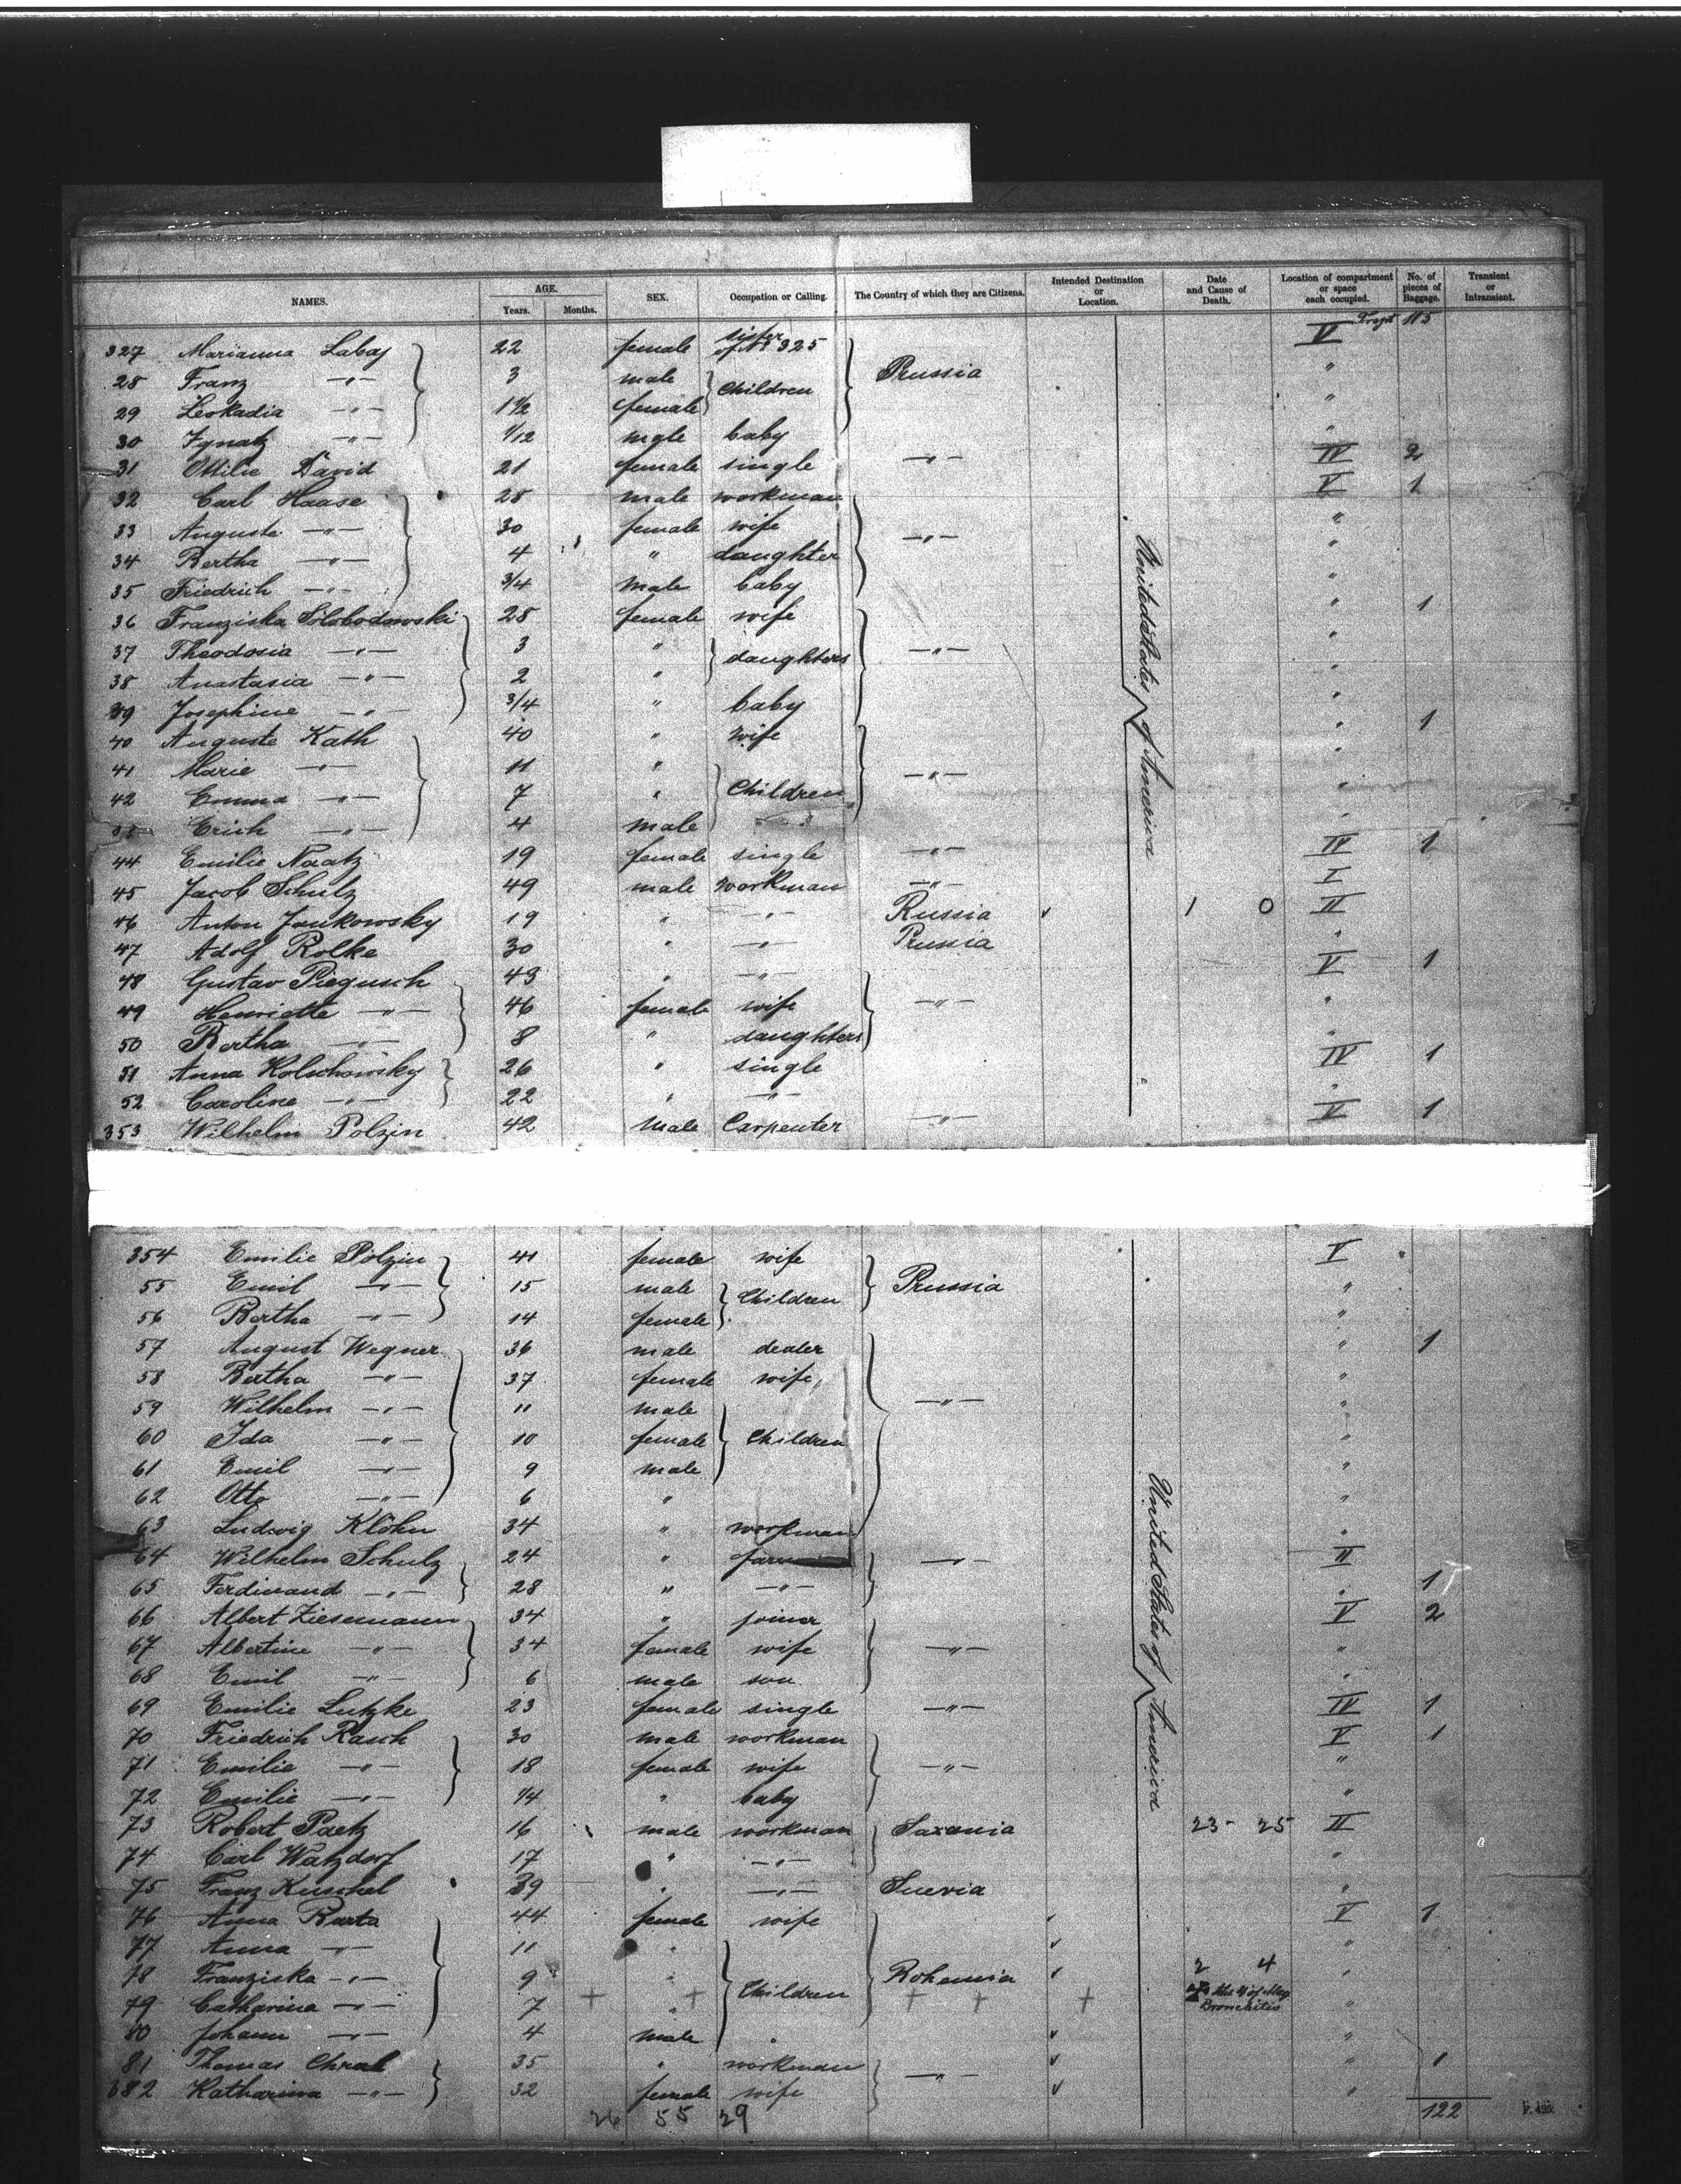 NAMES. AGE. Years. Months. SEX. Occupation or Calling. The Country of which they are Citizens. Intended Destination or Location. Date and Cause of Death. Location of compartment or space each occupied. No. of pieces of Baggage. Transient or Intransient.
115
327 Marianna Labaj 22 female sister of No 325 V
28 Franz —"— 3 male Children Prussia "
29 Leokadia —"— 1 1/2 female "
30 Ignatz —"— 1/12 male baby "
31 Ottilie David 21 female single —"— IV 2
32 Carl Haase 28 male workman V 1
33 Auguste —"— 30 female wife —"— "
34 Bertha —"— 4 " daughter "
35 Friedrich —"— 3/4 male baby "
36 Franziska Slobodowski 28 female wife " 1
37 Theodosia —"— 3 " daughters —"— "
38 Anastasia —"— 2 " "
39 Josephine —"— 3/4 " baby "
40 Auguste Kath 40 " wife " 1
41 Marie —"— 11 " —"— "
42 Emma —"— 7 " Children "
Erich —"— 4 male "
44 Emilie Naatz 19 female single —"— IV 1
45 Jacob Schulz 49 male workman —"— I
46 Anton Jankowsky 19 " —"— Russia 1 0 II
47 Adolf Rolke 30 " —"— Prussia "
48 Gustav Piegusch 43 " —"— V 1
49 Henriette —"— 46 female wife —"— "
50 Bertha —"— 8 " daughters "
51 Anna Kolschowsky 26 " single IV 1
52 Caroline —"— 22 " —"— "
353 Wilhelm Polzin 42 male Carpenter —"— V 1
United States of America
354 Emilie Polzin 41 female wife V
55 Emil —"— 15 male Children Prussia "
56 Bertha —"— 14 female "
57 August Wegner 36 male dealer " 1
58 Bertha —"— 37 female wife "
59 Wilhelm —"— 11 male —"— "
60 Ida —"— 10 female Children "
61 Emil —"— 9 male "
62 Otto —"— 6 " "
63 Ludwig Klöhn 34 " workman "
64 Wilhelm Schulz 24 " —"— II
65 Ferdinand —"— 28 " —"— " 1
66 Albert Ziesemann 34 " joiner V 2
67 Albertine —"— 34 female wife —"— "
68 Emil —"— 6 male son "
69 Emilie Lutzke 23 female single —"— IV 1
70 Friedrich Rasch 30 male workman V 1
71 Emilie —"— 18 female wife —"— "
72 Emilie —"— 1/4 " baby "
73 Robert Paetz 16 male workman Saxonia 23- 25 II
74 Carl Watzdorf 17 " —"— "
75 Franz Kuschel 39 " —"— Suevia "
76 Anna Barta 44 female wife V 1
77 Anna —"— 11 " "
78 Franziska —"— 9 " Children Bohemia 2 4 "
79 Catharina —"— 7 " the 4 of May Bronchitis "
80 Johann —"— 4 male "
81 Thomas Chral 35 " workman " 1
682 Katharina —"— 32 female wife —"— "
United States of America
26 55 29 122